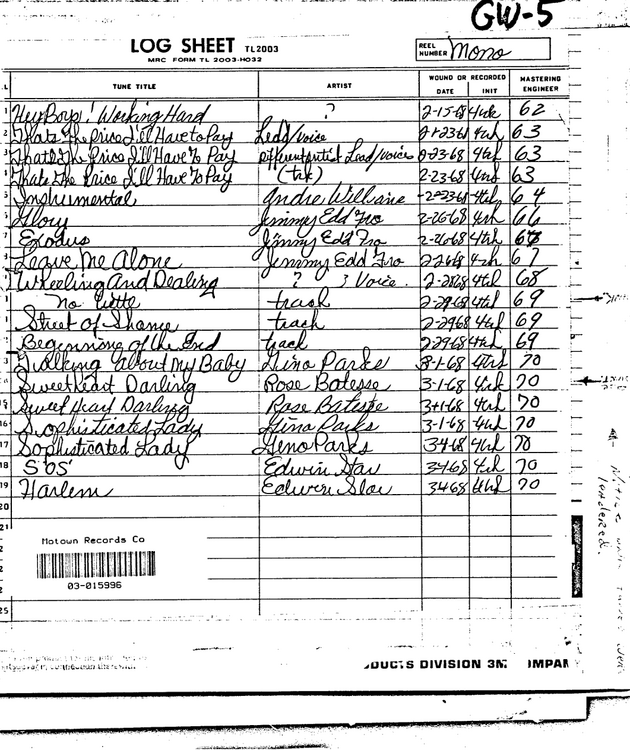 GW-5
LOG SHEET TL2003
MRC FORM TL 2003-H032
REEL NUMBER Mono
TUNE TITLE ARTIST WOUND OR RECORDED DATE INIT MASTERING ENGINEER
1 Hey Boys! Working Hard ? 2-15-68 4th 62
2 Thats The Price I'll Have to Pay Lead/voice 2-23-68 4th 63
Thats The Price I'll Have To Pay different artist Lead/voice 2-23-68 4th 63
Thats The Price I'll Have To Pay (trk) 2-23-68 4th 63
Instrumental Andre Williams 2-23-68 4th 64
Glory Jimmy Edd Tro 2-26-68 4th 66
Exodus Jimmy Edd Tro 2-26-68 4th 67
Leave Me Alone Jimmy Edd Tro 2-26-68 4th 67
Wheeling And Dealing ? 3 Voice. 2-28-68 4th 68
no title track 2-29-68 4th 69
Street of Shame track 2-29-68 4th 69
Beginning of the End track 2-29-68 4th 69
Talking About My Baby Gino Parks 3-1-68 4th 70
Sweetheart Darling Rose Batiste 3-1-68 4th 70
15 Sweetheart Darling Rose Batiste 3-1-68 4th 70
16 Sophisticated Lady Gino Parks 3-1-68 4th 70
17 Sophisticated Lady Geno Parks 3-4-68 4th 70
18 S'OS' Edwin Star 3-4-68 4th 70
19 Harlem Edwin Star 3-4-68 4th 70
20
21
Motown Records Co
03-015996
25
DUCTS DIVISION 3M